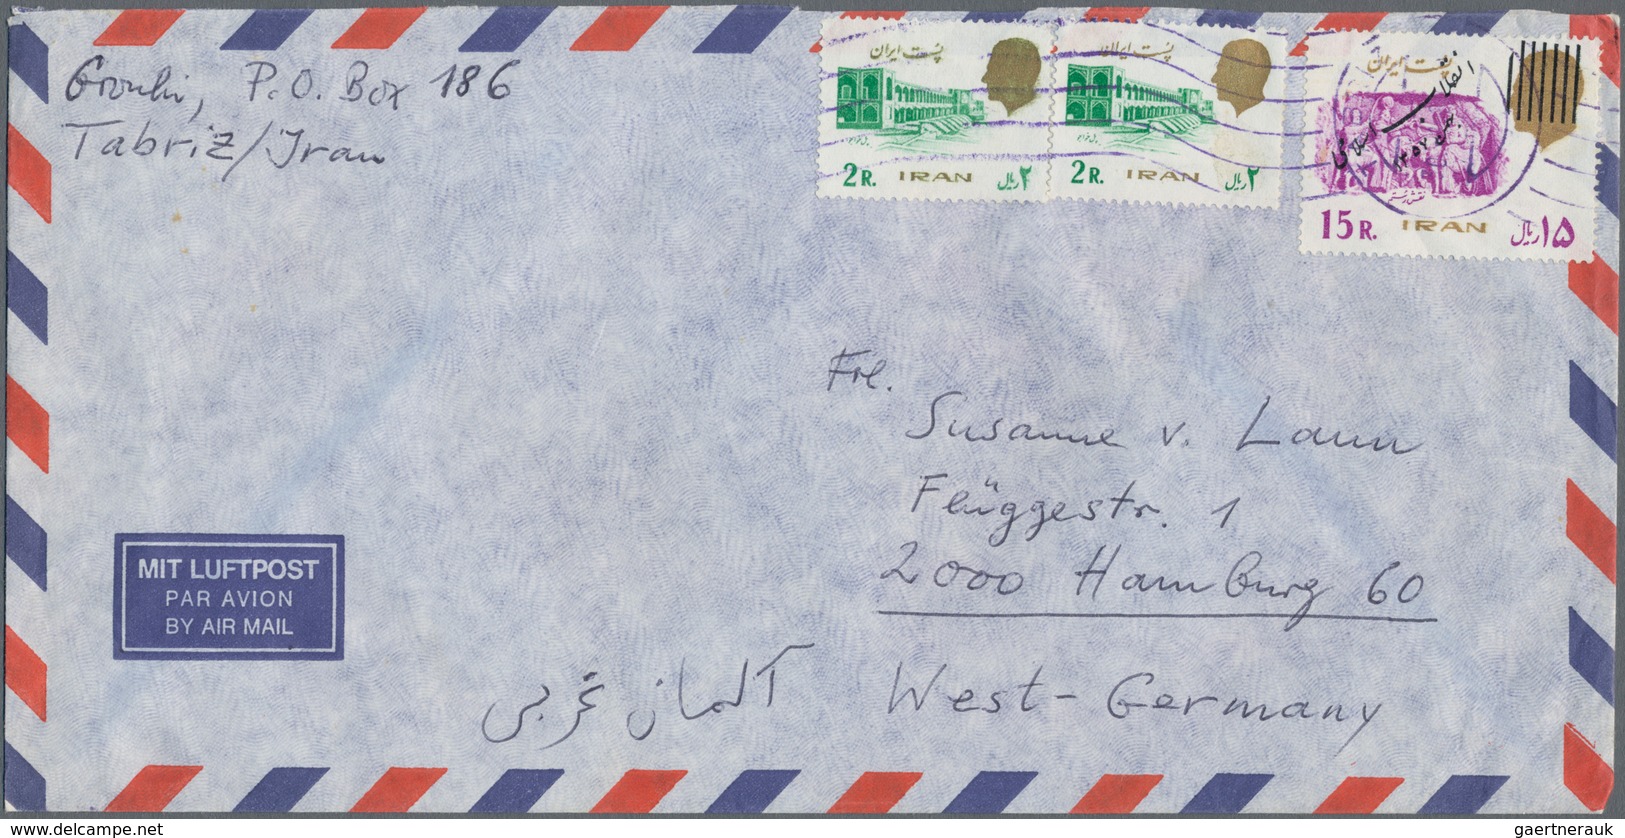 P.O. Box 186
Tabriz/Iran
پست ایران
2 R. IRAN ۲ ریال
پست ایران
2 R. IRAN ۲ ریال
پست ایران
انقلاب اسلامی
بهمن ۱۳۵۷
نقش رستم
15 R. IRAN ۱۵ ریال
Frl.
Susanne v. Laun
Flüggestr. 1
2000 Hamburg 60
West-Germany
آلمان غربی
MIT LUFTPOST
PAR AVION
BY AIR MAIL
www.delcampe.net
gaertnerauk